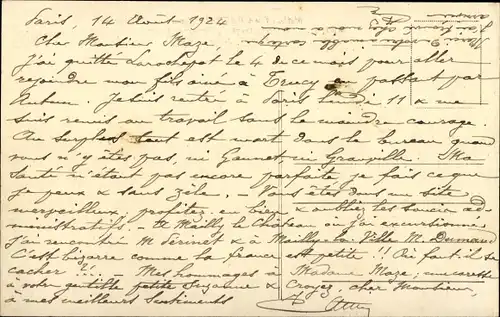 Paris, 14 Août 1924
Cher Monsieur Maze,
J'ai quitté Larochepot le 4 de ce mois pour aller
rejoindre mon fils aîné à Trucy en passant par
Autun. Je suis rentré à Paris lundi 11 & me
suis remis au travail sans le moindre courage
Au surplus tout est mort dans le bureau quand
vous n'y êtes pas, ni Gaunet, ni Granville. Ma
santé n'était pas encore parfaite je fais ce que
je peux & sans zèle. - Vous êtes dans un site
merveilleux profitez en bien & oubliez les soucis ad-
ministratifs. - A Mailly le Château où j'ai excursionné
j'ai rencontré M. & à Mailly-la-Ville M. Durand
C'est bizarre comme la france est petite !! Où faut-il se
cacher ?!.. - Mes hommages à Madame Maze; une caresse
à votre gentille petite Suzanne & Croyez, cher Monsieur,
à mes meilleurs sentiments